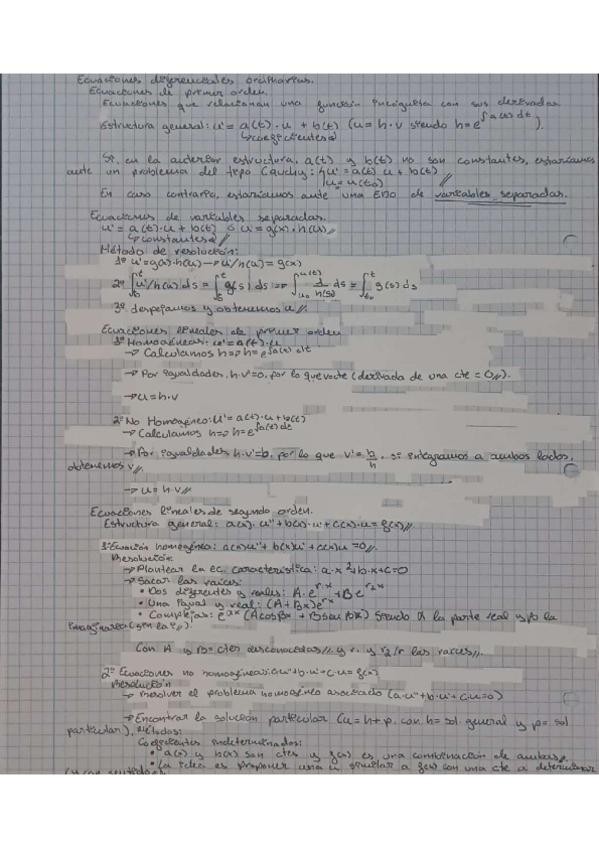 Ecuaciones diferenciales ordinarias.
Ecuaciones de primer orden.
Ecuaciones que relacionan una función incógnita con sus derivadas
Estructura general: u' = a(t)·u + b(t) (u = h·v siendo h = e^∫a(t)dt).
↳ coeficientes
Si, en la anterior estructura, a(t) y b(t) no son constantes, estaríamos
ante un problema del tipo Cauchy: { u' = a(t) u + b(t)
u₀ = u(t₀)
En caso contrario, estaríamos ante una EDO de variables separadas.
Ecuaciones de variables separadas.
u' = a(t)·u + b(t) ó u' = g(x)·h(u)
↳ constantes
Método de resolución:
1º u' = g(x)·h(u) → u'/h(u) = g(x)
2º ∫ u'/h(u) ds = ∫ g(s) ds ⇒ ∫ 1/h(s) ds = ∫ g(s) ds
3º despejamos y obtenemos u
Ecuaciones lineales de primer orden
1º Homogéneas: u' = a(t)·u
→ Calculamos h ⇒ h = e^∫a(t)dt
→ Por igualdades, h·v' = 0, por lo que v = cte (derivada de una cte = 0).
→ u = h·v
2º No Homogéneo: u' = a(t)·u + b(t)
→ Calculamos h ⇒ h = e^∫a(t)dt
→ Por igualdades h·v' = b, por lo que v' = b/h, si integramos a ambos lados,
obtenemos v
→ u = h·v
Ecuaciones lineales de segundo orden.
Estructura general: a(x)·u'' + b(x)·u' + c(x)·u = g(x)
1º Ecuación homogénea: a(x)u'' + b(x)u' + c(x)u = 0
Resolución
→ Plantear la ec. característica: a·x² + b·x + c = 0
→ Sacar las raíces:
• Dos diferentes y reales: A·e^r₁x + B e^r₂x
• Una igual y real: (A + Bx)e^rx
• Complejas: e^αx (A cos βx + B sen βx) siendo α la parte real y β la
imaginaria (sin la i).
Con A y B = ctes desconocidas y r₁ y r₂/r las raíces
2º Ecuaciones no homogéneas: a·u'' + b·u' + c·u = g(x)
Resolución
→ Resolver el problema homogéneo asociado (a·u'' + b·u' + c·u = 0)
→ Encontrar la solución particular (u = h + p, con h = sol. general y p = sol
particular), Métodos:
Coeficientes indeterminados:
• a(x) y b(x) son ctes y g(x) es una combinación de ambas
• La idea es proponer una u similar a g(x) con una cte a determinar